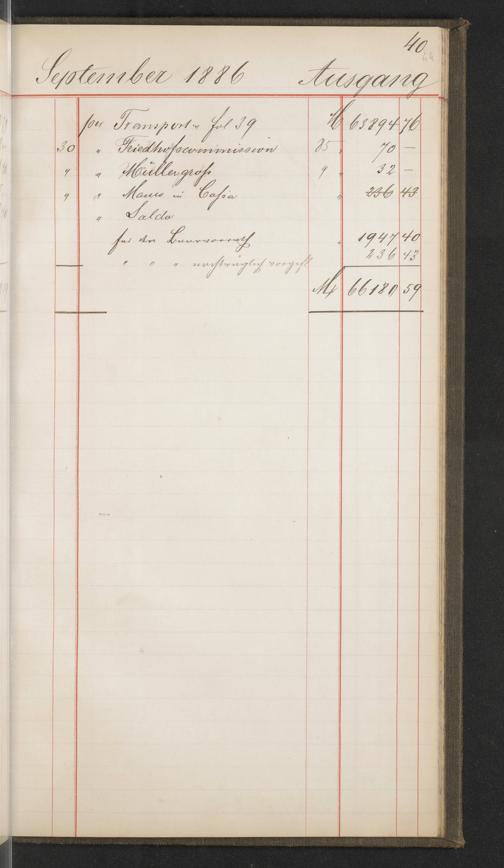 40
44
September 1886 Ausgang
per Transport v fol 39 M 63894 76
30 " Friedhofscommission 85 " 70 —
" " Müllergross 9 " 32 —
" " Manco in Cassa " 236 43
" Saldo
für den Baarvorrath " 1947 40
" " " nachträglich 236 43
M 66180 59